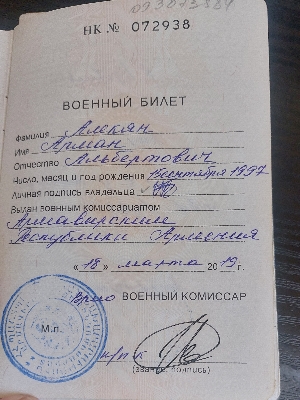 НК № 072938
ВОЕННЫЙ БИЛЕТ
Фамилия Алекян
Имя Арман
Отчество Альбертович
Число, месяц и год рождения сентября 1997
Личная подпись владельца
Выдан военным комиссариатом
Армавирским
Республики Армения
«18» марта 2019 г.
Врио ВОЕННЫЙ КОМИССАР
М.п.
(звание, подпись)